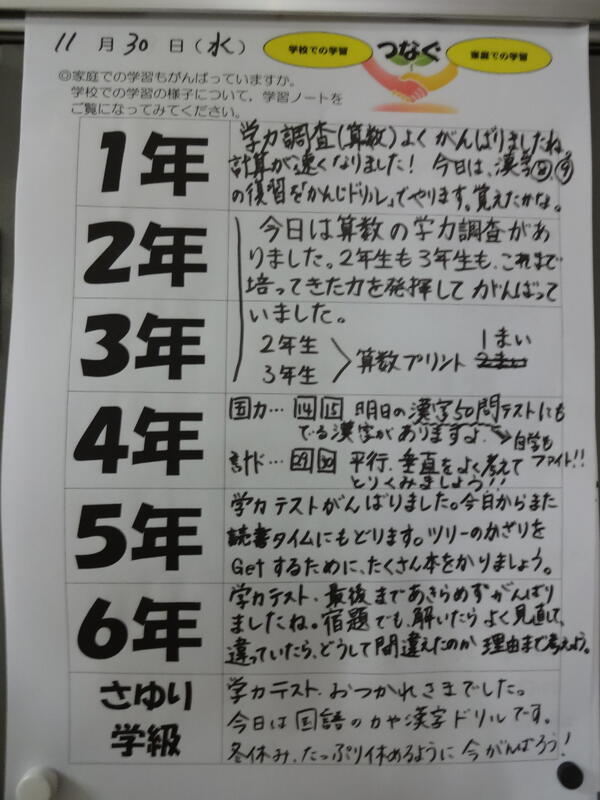 11月30日(水)
学校での学習 つなぐ 家庭での学習
◎家庭での学習もがんばっていますか。
学校での学習の様子について,学習ノートを
ご覧になってみてください。
1年
学力調査(算数)よくがんばりましたね。
計算が速くなりました! 今日は、漢字⑧⑨
の復習を「かんじドリル」でやります。覚えたかな。
2年
3年
今日は算数の学力調査があ
りました。2年生も3年生も、これまで
培ってきた力を発揮してがんばって
いました。
2年生
3年生
算数プリント 1まい
2まい
4年
国力… 14 15 明日の漢字50問テストにも
でる漢字がありますよ。→自学も
ファイト!!
計ド… 29 30 平行、垂直をよく考えて
とりくみましょう!!
5年
学力テストがんばりました。今日からまた
読書タイムにもどります。ツリーのかざりを
Getするために、たくさん本をかりましょう。
6年
学力テスト、最後まであきらめずがんばり
ましたね。宿題でも、解いたらよく見直して、
違っていたら、どうして間違えたのか理由まで考えよう。
さゆり
学級
学力テスト、おつかれさまでした。
今日は国語の力や漢字ドリルです。
冬休み、たっぷり休めるように今がんばろう!